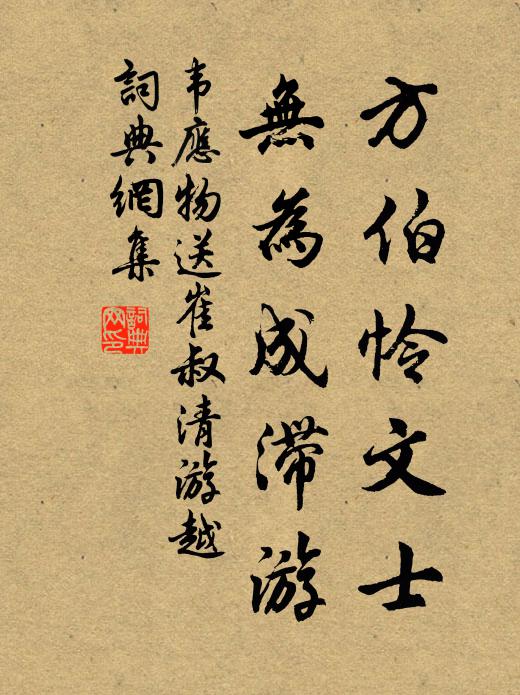 方伯怜文士
無為成滯游
韦應物送崔叔清游越
詞典網集
詞典网印